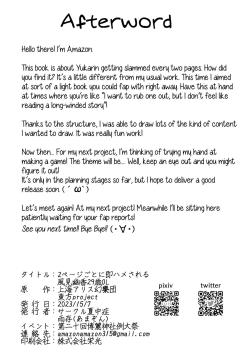 Afterword
Hello there! I'm Amazon.
This book is about Yukarin getting slammed every two pages. How did
you find it? It's a little different from my usual work. This time I aimed
at sort of a light book you could fap with right away. Have this at hand
at times where you're like "I want to rub one out, but I don't feel like
reading a long-winded story"!
Thanks to the structure, I was able to draw lots of the kind of content
I wanted to draw. It was really fun work!
Now then... For my next project, I'm thinking of trying my hand at
making a game! The theme will be... Well, keep an eye out and you might
figure it out!
It's only in the planning stages so far, but I hope to deliver a good
release soon. (´ω`)
Let's meet again! At my next project! Meanwhile I'll be sitting here
patiently waiting for your fap reports!
See you next time!! Bye Bye!! (・∀・)
pixiv
twitter
タイトル:2ページごとに即ハメされる
風見幽香29歳OL
原作:上海アリス幻樂団
東方project
発行日:2023/5/7
発行者:サークル夏中症
雨存(あまぞん)
イベント:第二十回博麗神社例大祭
連絡先:amazonamazon315@gmail.com
印刷会社:株式会社栄光